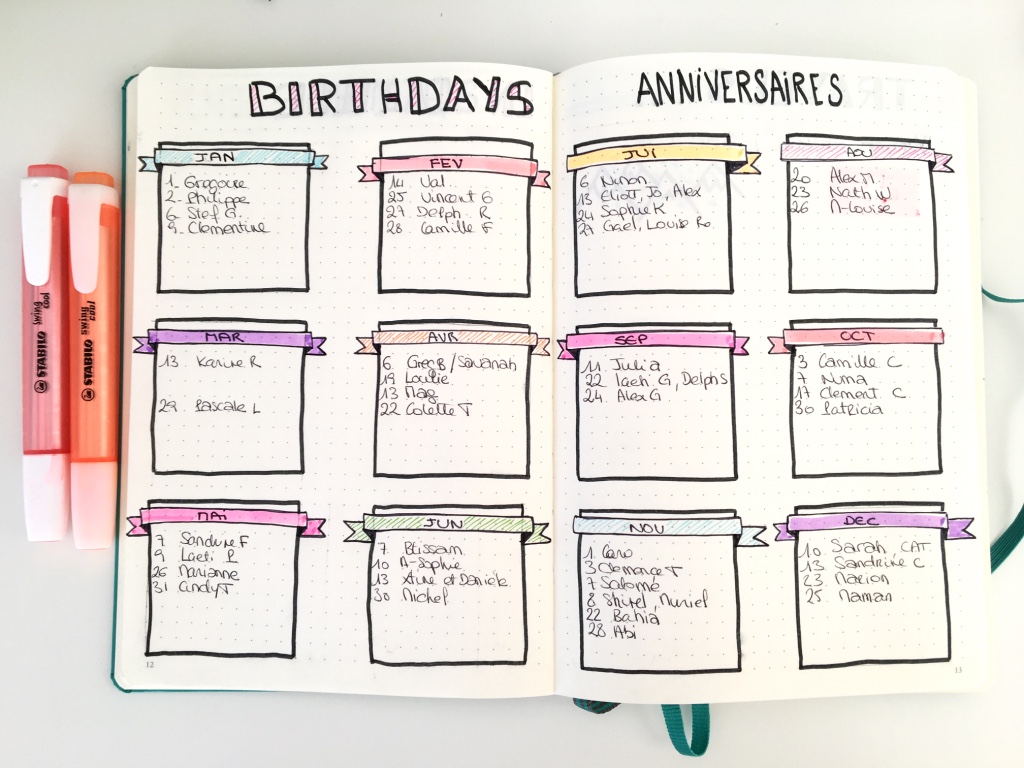 BIRTHDAYS
ANNIVERSAIRES
JAN
1 Grégoire
2 Philippe
6 Stef G.
9 Clementine
FEV
14 Val
25 Vincent G
27 Delph. R
28 Camille F
MAR
13 Karine R
29 Pascale L
AVR
6 GregB/Savanah
19 Loulie
13 Mag
22 Colette T
MAI
7 Sandrine F
9 Laeti P
26 Marianne
31 Cindy T
JUN
7 Btissam
10 A-Sophie
13 et Danièle
30 Michel
JUI
6 Ninon
13 Eliott, Jo, Alex
24 Sophie K
27 Gael, Louis Ro.
AOU
20 Alex M.
23 Nath W
26 M-Louise
SEP
11 Julia
22 Laeti G, Delphs
24 Alex G
OCT
3 Camille C
7 Nina
17 Clement. C
30 Patricia
NOV
1 Caro
3 Clemence T
7 Salomé
8 Shirel, Muriel
22 Bahia
28 Abi
DEC
10 Sarah, CAT
13 Sandrine C
23 Marion
25 Maman
12
13
STABILO swing cool
STABILO swing cool